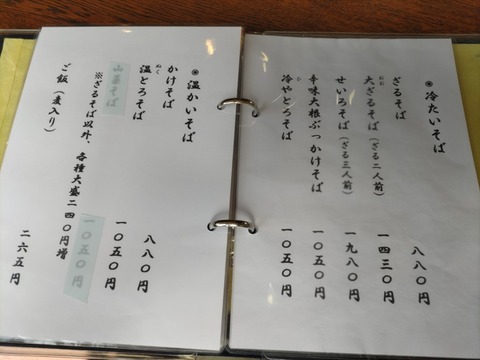 ◉冷たいそば
ざるそば 八八〇円
大ざるそば（ざる二人前） 一四三〇円
おお
せいろそば（ざる三人前） 一九八〇円
辛味大根ぶっかけそば 一〇五〇円
冷やとろそば 一〇五〇円
ひ
◉温かいそば
かけそば 八八〇円
温とろそば 一〇五〇円
ぬく
山菜そば 一〇五〇円
※ざるそば以外、各種大盛二四〇円増
ご飯（麦入り） 二六五円